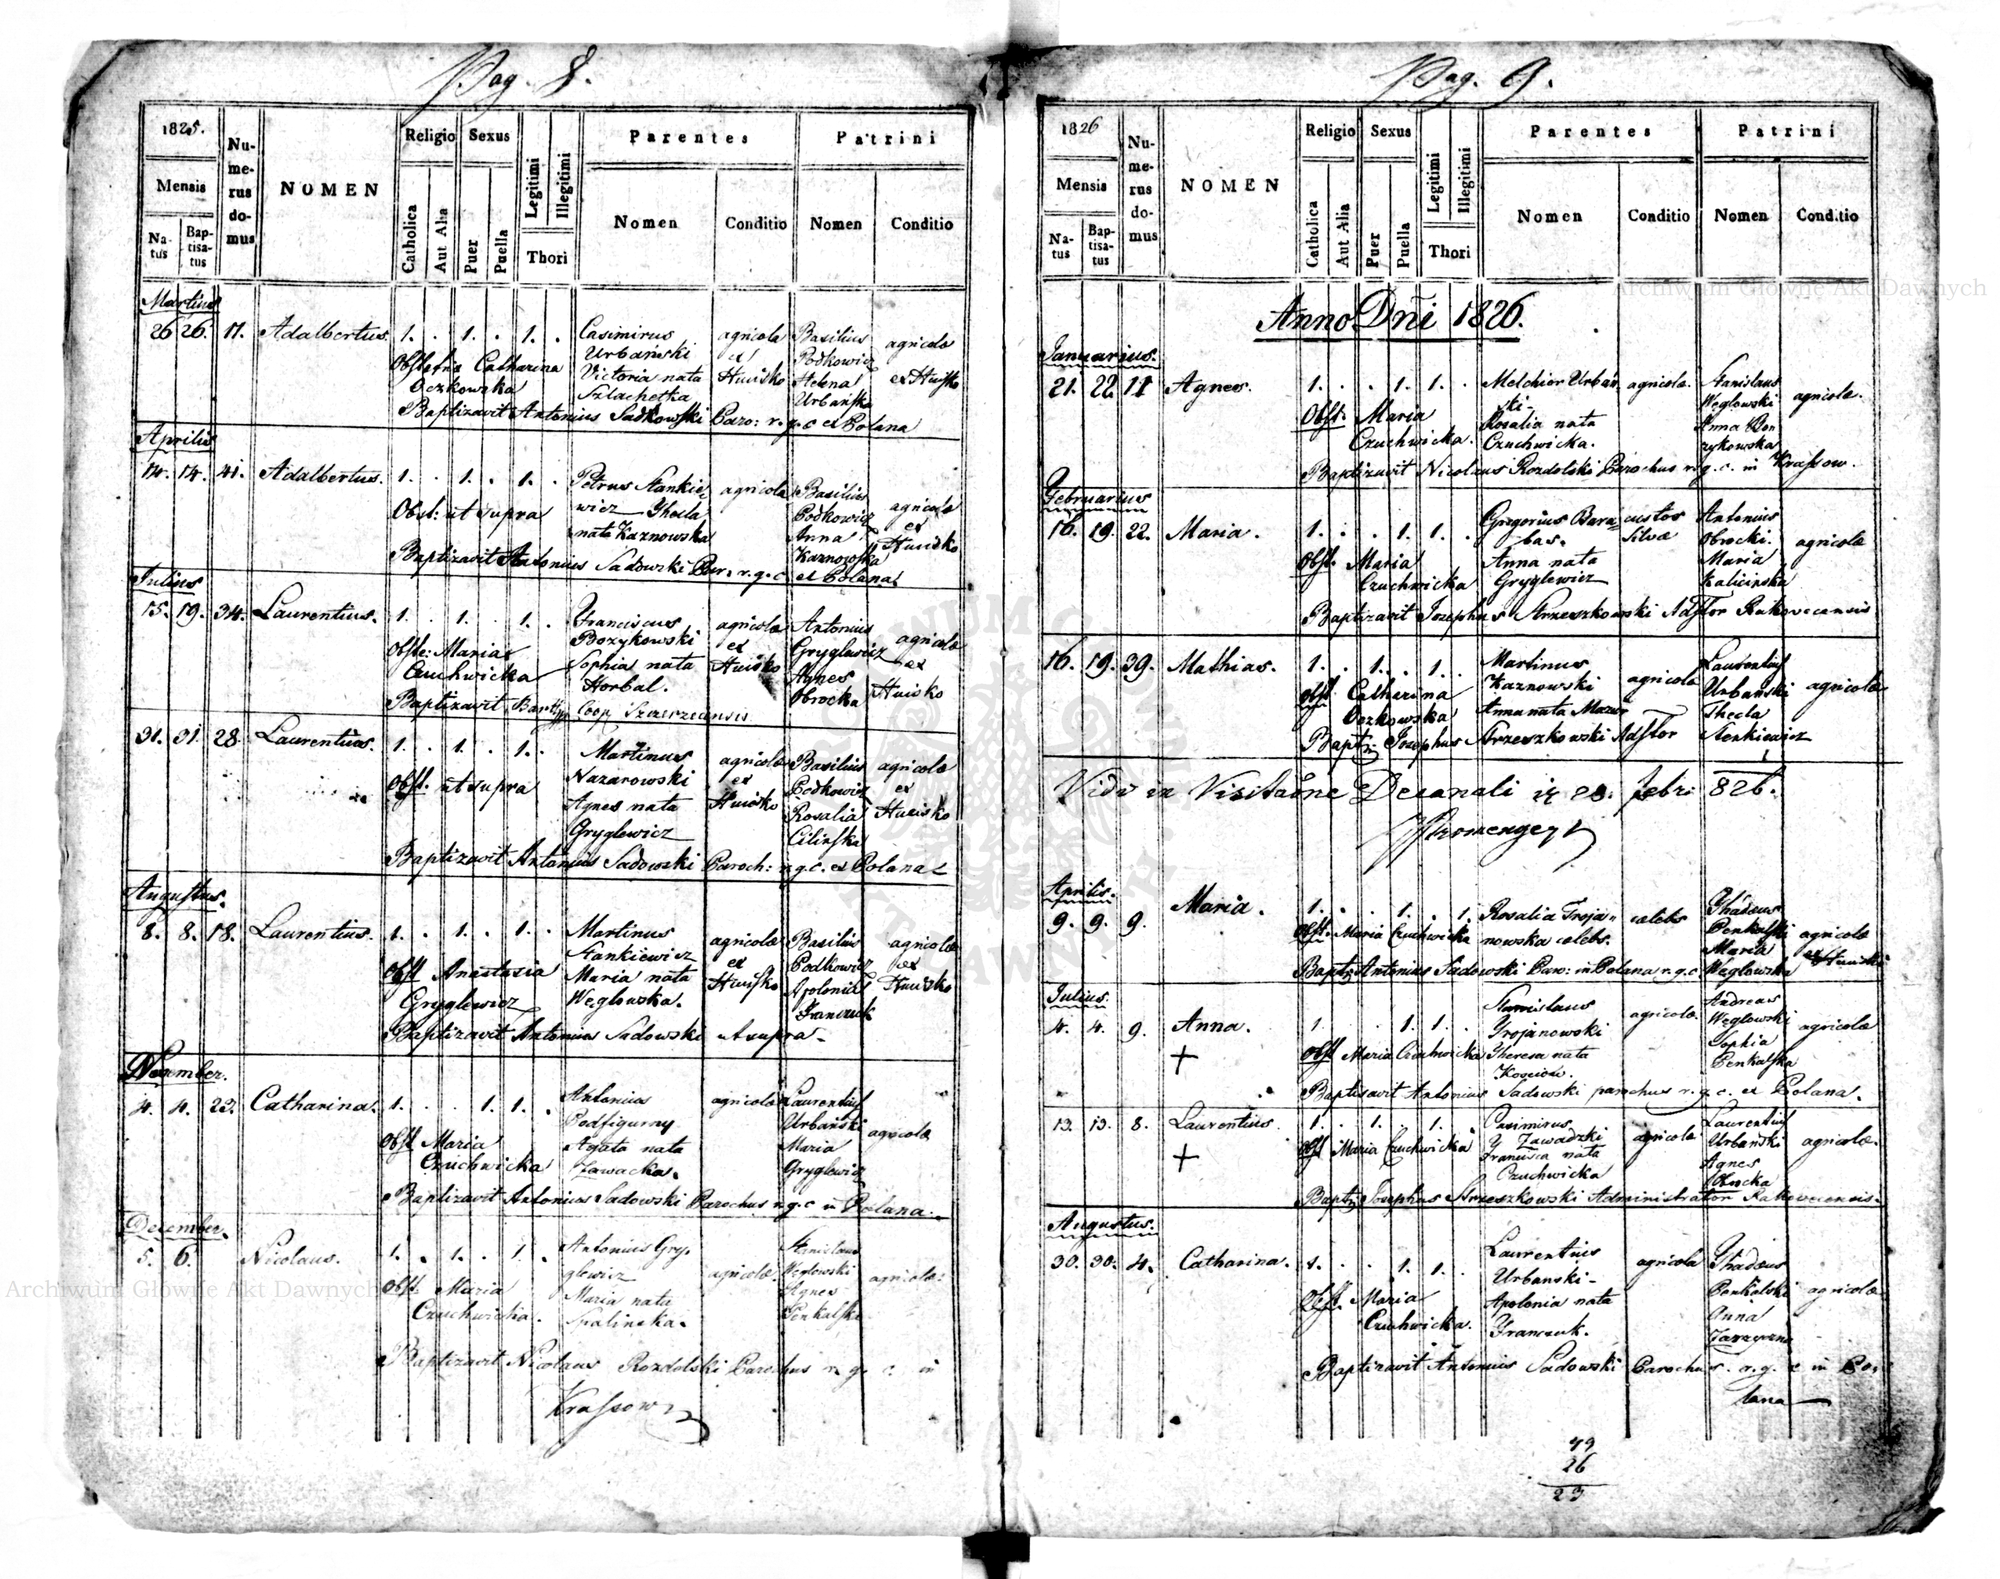 Pag. 8.
1825.
Mensis
Na-
tus
Bap-
tisa-
tus
Nu-
me-
rus
do-
mus
NOMEN
Religio
Catholica
Aut Alia
Sexus
Puer
Puella
Legitimi
Illegitimi
Thori
Parentes
Nomen
Conditio
Patrini
Nomen
Conditio
Martius
26 26. 17. Adalbertus. 1. . 1. . 1. . Casimirus agricola Basilius agricola
Urbanski ex Podkowicz
Obstetrix Catharina Victoria nata Huisko Helena ex Huisko
Oczkowska Szlachetka Urbańska
Baptizavit Antonius Sadkowski Paro: r.g.c ex Polana
Aprilis
14. 14. 41. Adalbertus. 1. . 1. . 1. . Petrus Stankie- agricola Basilius agricola
Obst: ut supra wicz Thecla Podkowicz ex
nata Kaznowska Anna Huisko
Kaznowska
Baptizavit Antonius Sadowski Par. r.g.c. ex Polana
Julius
15. 19. 34. Laurentius. 1. . 1. . 1. . Franciscus agricola Antonius agricola
Obste: Maria Bozykowski ex Gryglewicz ex
Czuchwicka Sophia nata Huisko Agnes Huisko
Horbal. Obrocka
Baptizavit Coop Szczerzecensis
31. 31. 28. Laurentius. 1. . 1. . 1. . Martinus agricola Basilius agricola
Obst. ut supra Nazarowski ex Podkowicz ex
Agnes nata Huisko Rosalia Huisko
Gryglewicz Cilinska
Baptizavit Antonius Sadowski Paroch: r.g.c. ex Polana
Augustus.
8. 8. 18. Laurentius. 1. . 1. . 1. . Martinus agricola Basilius agricola
Stankiewicz ex Podkowicz ex
Obst Anastasia Maria nata Huisko Apolonia Huisko
Gryglewicz Węglowska. Franczuk
Baptizavit Antonius Sadowski ut supra
November.
4. 4. 23. Catharina. 1. . . 1. 1. . Antonius agricola Laurentius
Podfigurny Urbański agricola
Obst Maria Agata nata Maria
Czuchwicka Zawacka. Gryglewicz
Baptizavit Antonius Sadowski Parochus r.g.c in Polana.
December.
5. 6. Nicolaus. 1. . 1. . 1. . Antonius Gry- Stanislaus
glewicz agricola. Węglowski agricola.
Obst Maria Maria nata Agnes
Czuchwicka. Spalinska. Penkalski
Baptizavit Nicolaus Rozdolski Parochus r. g. c. in
Krassow
Pag. 9.
1826
Mensis
Na-
tus
Bap-
tisa-
tus
Nu-
me-
rus
do-
mus
NOMEN
Religio
Catholica
Aut Alia
Sexus
Puer
Puella
Legitimi
Illegitimi
Thori
Parentes
Nomen
Conditio
Patrini
Nomen
Conditio
Anno Dni 1826.
Januarius.
21. 22. 11 Agnes. 1. . . 1. 1. . Melchior Urbań agricola. Stanislaus agricola.
ski. Węglowski
Obst: Maria Rosalia nata Anna Bo-
Czuchwicka. Czuchwicka. zykowska
Baptizavit Nicolaus Rozdolski Parochus r.g.c. in Krassow.
Februarius
16. 19. 22. Maria. 1. . . 1. 1. . Gregorius Bara- custos Antonius
bas. Silvæ Obrocki. agricola
Obst. Maria Anna nata Maria
Czuchwicka Gryglewicz Kalicinska
Baptizavit Josephus Strzeszkowski Adstor Rakovecensis
16. 19. 39. Mathias. 1. . 1. . 1. . Martinus Laurentius
Obst. Catharina Kaznowski agricola Urbański agricola
Oczkowska Anna nata Mazur Thecla
Bapt: Josephus Strzeszkowski Adstor Stenkiewicz
Vidi in Visitaõne Decanali Febr: 826.
Aprilis.
9. 9. 9. Maria. 1. . . 1. . 1. Rosalia Troja- cælebs Thadæus
Obst. Maria Czuchwicka nowska cælebs. Penkalski agricola
Maria ex Huisko
Bapt: Antonius Sadowski Paro: in Polana r.g.c Węglowska
Julius.
4. 4. 9. Anna. 1. . . 1. 1. . Stanislaus agricola. Andreas
Trojanowski Węglowski agricola
Obst Maria Czuchwicka Theresa nata Sophia
Kosciów. Penkalska
Baptisavit Antonius Sadowski parochus r. g. c. ex Polana.
13. 13. 8. Laurentius. 1. . 1. . 1. . Casimirus Laurentius
Zawadzki agricola Urbański agricola.
Obst Maria Czuchwicka Francisca nata Agnes
Czuchwicka Obrocka
Bapt: Josephus Strzeszkowski Administrator Rakovecensis.
Augustus.
30. 30. 4. Catharina. 1. . . 1. 1. . Laurentius agricola Thadæus
Urbanski Penkalski agricola
Obst. Maria Apolonia nata Anna
Czuchwicka. Franczuk. Zarzyczna
Baptizavit Antonius Sadowski Parochus. r. g. c in Po-
lana
49
26
23
Archiwum Główne Akt Dawnych
Archiwum Główne Akt Dawnych